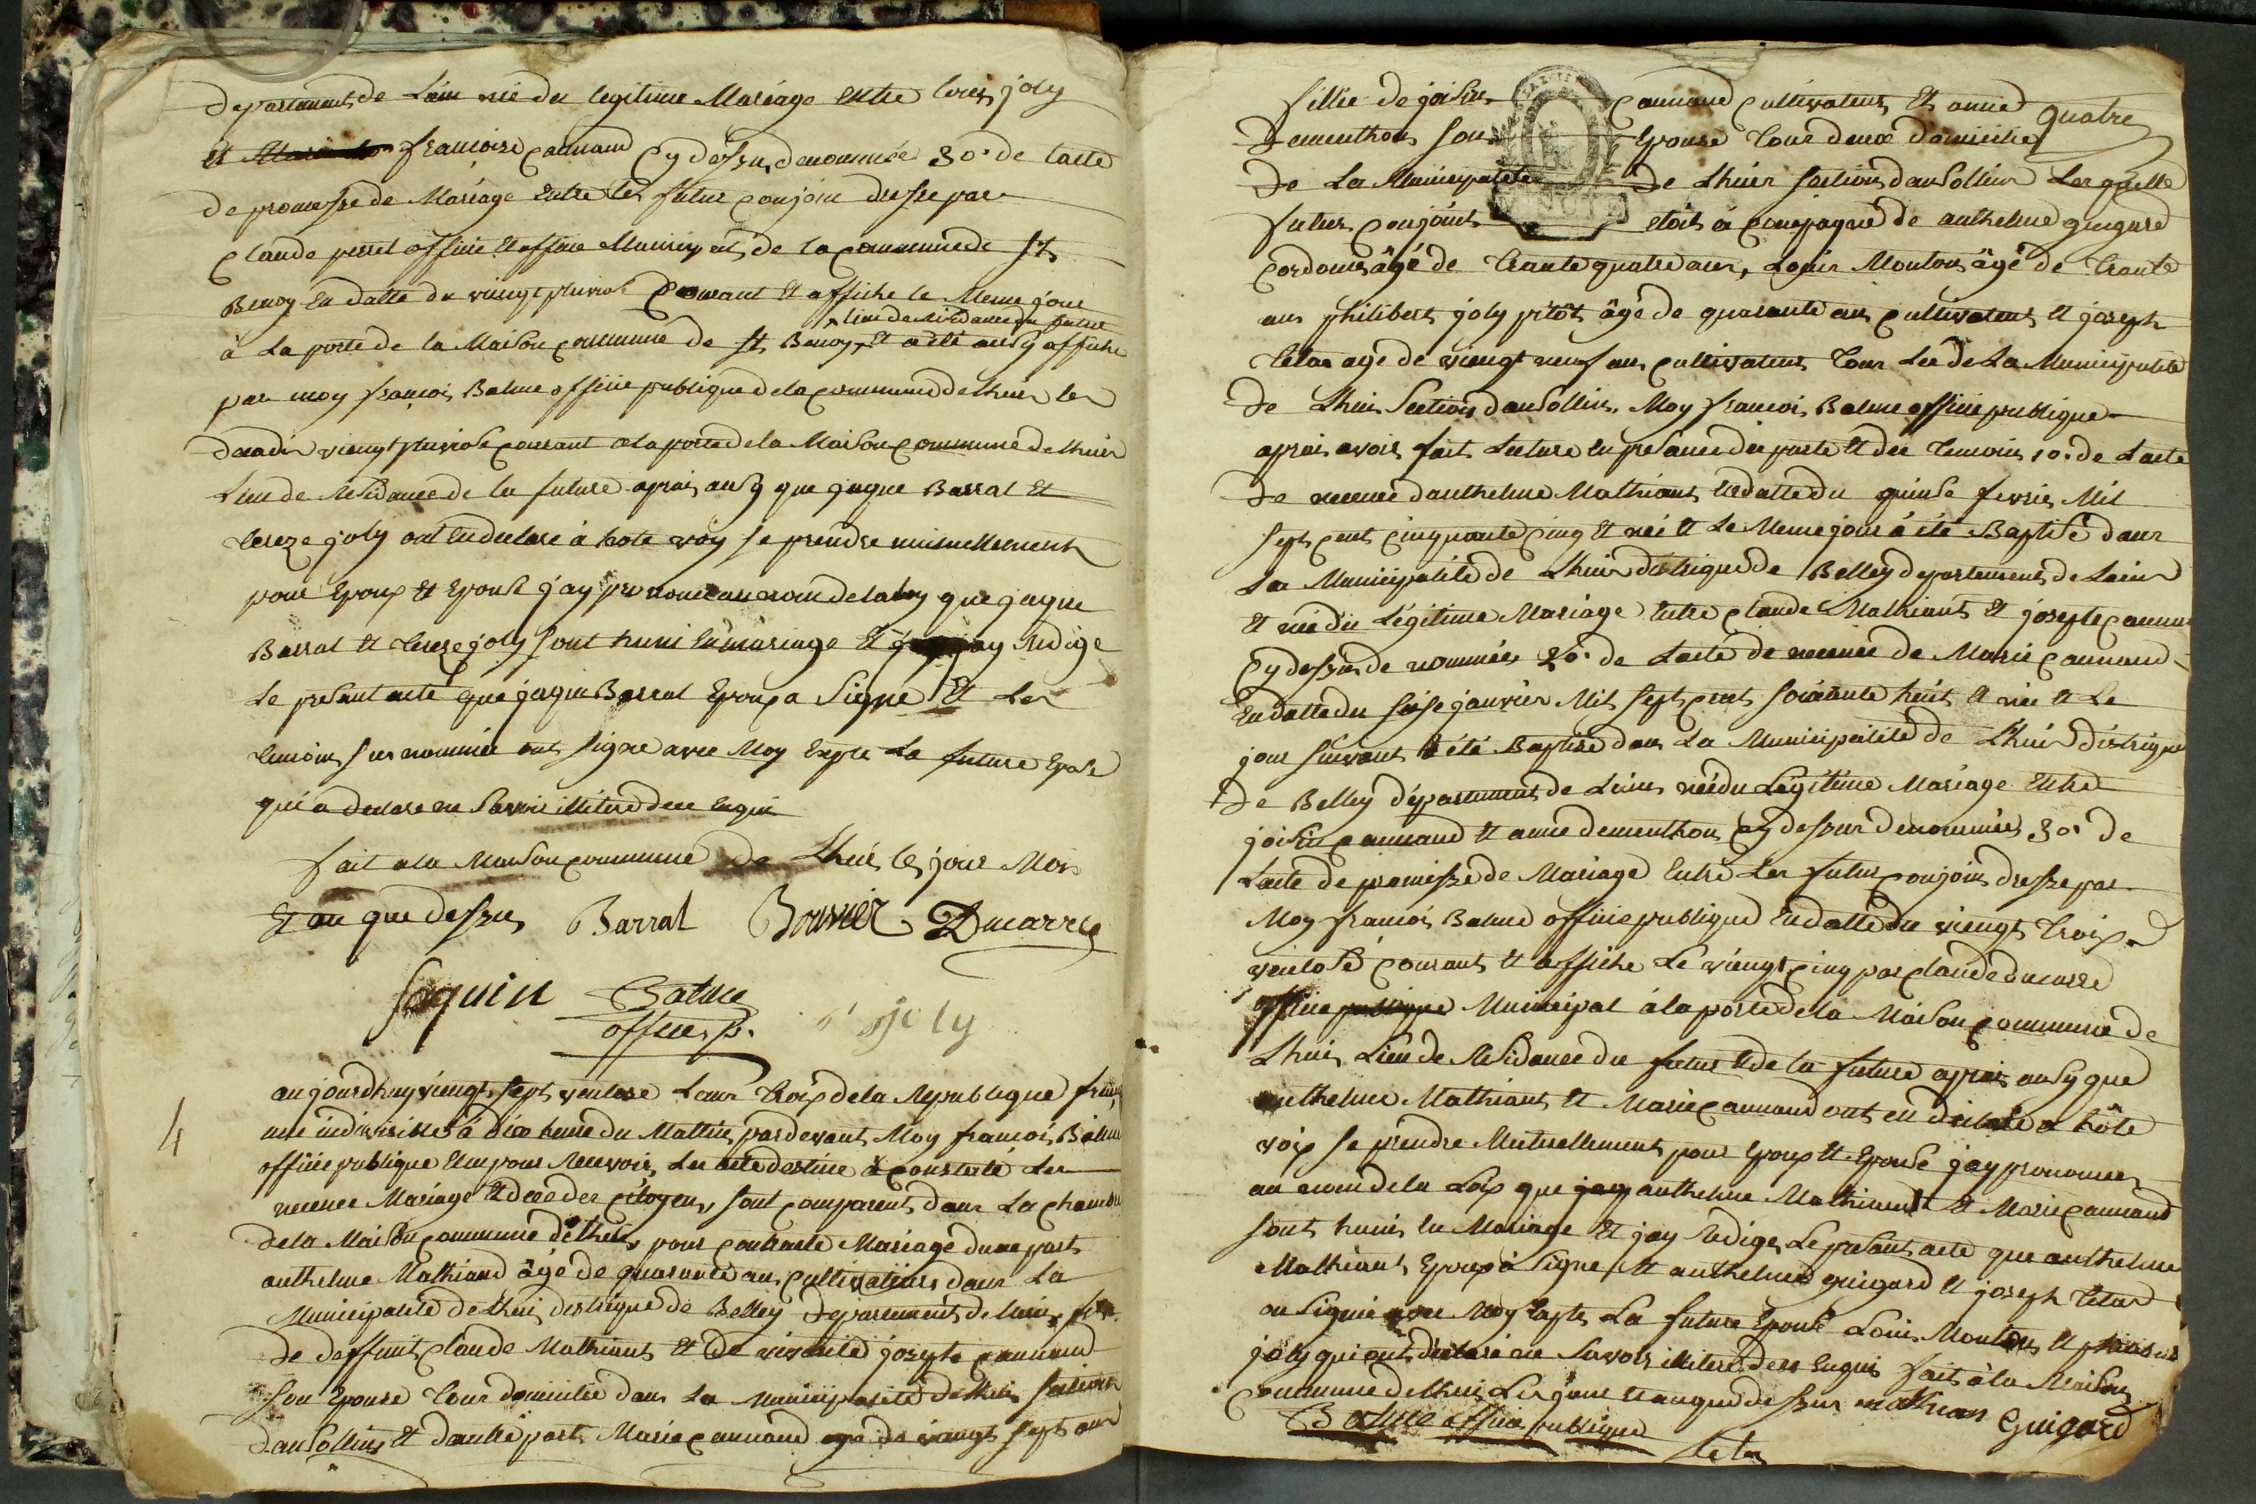 departement de Lain née du legitime Mariage entre louis joly
francoise cannand Cy dessus denommée 30. de lacte
de promesse de Mariage entre les futur conjoin dresse par
claude perret officie Municipal de la commune de St
Benoy en datte du viengt pluviose Courant et affiche le Meme jour
lieu de Residance du futur
à la porte de la Maison commune de St Benoy, et a été ausy affiche
par moy françois Balme officie publique de la commune de lhuis le
decadi viengt pluviose courant a la porte de la Maison commune de lhuis
Lieu de Residance de la future aprais ausy que jaque Barral et
tereze joly ont en declare à hote voix se prendre mutuellement
pour Epoux et Epouse j'ay prononce au nom de la loy que jaque
Barral et tereze joly sont huni en mariage et jay Redige
Le present acte que jaque Barral Epoux a Signe et Les
temoins sus nommée ont signe avec Moy Exepte La future Epouse
qui a declare ne Savoir illitere de ce enquis
fait a la Maison commune de Lhuis les jour Mois
Et an que dessus Barral Bouvier Ducarre
Seguin Balme
officier p. joly
4
aujourdhuy viengt sept ventose Lan troix de la Republique fran
une indivisible à dix heure du Mattin pardevant Moy francois Balme
officie publique Elu pour Recevoir Les acte destine à constaté Les
necence Mariage et deceder Citoyens, sont comparent dans La chambre
de la Maison commune de lhuis pour contracte Mariage dune part
anthelme Mathiand âgé de quarante ans cultivateur dans La
Municipalité de lhuis destrique de Belley Departement de Lain, fils
de deffunt claude Mathiant et de vivante josephe cannand
son Epouse tous domicilie dans La Municipalité de lhuis section
dansollin et dautre part Marie cannand age de viengt sept ans
quatre
fillie de joisin cannand cultivateur et anne
Dementhon son Epouse tous deux domicilie
de La Municipalité de Lhuis section dansollin Lesquelle
futur conjoint etoit acompagné de anthelme guigard
cordonis âgé de trante quatre ans, Louis Mouton âgé de trante
ans philibert joly pitôt âgé de quarante ans cultivateur et joseph
tetaz agé de viengt neuf ans cultivateur tous Les de La Municipalité
de Lhuis Section dansollin. Moy francois Balme officie publique
aprais avoir fait Lecture en presance de parte et des temoins 10. de Lacte
de necence danthelme Mathiant en datte du quinse fevrier Mil
sept cent cinquante cinq et né et Le Meme jour à été Baptisé dans
La Municipalité de Lhuis distrique de Belley departement de Lain
et né du Légitime Mariage Entre claude Mathiant et josepte cannan
Cy dessus de nommées 20. de Lacte de necence de Marie cannand
En datte du seise janvier Mil sept cent soixante huit et née et Le
jour suivant à été Baptise dans La Municipalité de Lhuis distrique
de Belley département de Lain née du Légitime Mariage Entre
joisin cannand et anne dementhon Cy dessus denommées 30. de
Lacte de promesse de Mariage Entre Les futur conjoin dresse par
Moy francois Balme officie publique En datte du viengt troix
ventose courant et affiche Le viengt cinq par claude ducarre
officie publique Municipal à la porte de la Maison commune de
Lhuis Lieu de Residance du futur et de la future aprais ausy que
anthelme Mathiant et Marie cannand ont en declare a hôte
voix se prendre Mutuellement pour Epoux et Epouse jay prononcer
au nom de la Loix que jay anthelme Mathiant et Marie cannand
sont hunis en Mariage et jay redige Le présent acte que anthelme
Mathiant Epoux à Signe et anthelme guigard et joseph tetaz
on Signée avec Moy Exepte La future Epouse Louis Mouton et philibert
joly qui ont declaré ne Savoir illitere de ce Enquis fait à la Maison
Commune de lhuis Les jour et an que dessus mathian Guigard
Balme officie publique tetaz